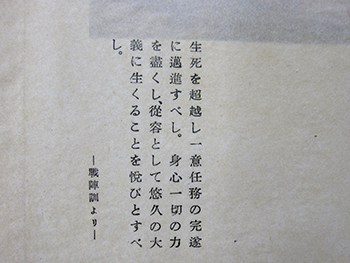 生死を超越し一意任務の完遂
に邁進すべし。身心一切の力
を盡くし、從容として悠久の大
義に生くることを悅びとすべ
し。
―戰陣訓より―